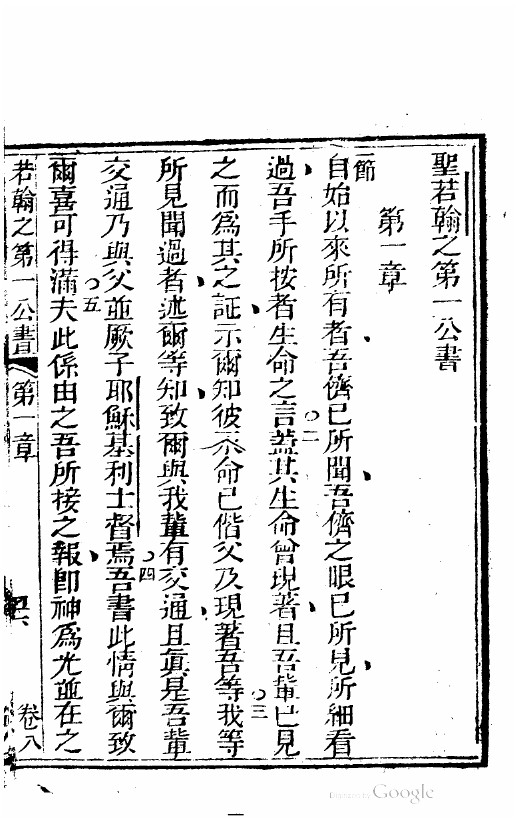 聖若翰之第一公書
第一章
節
自始以來所有者吾儕已所聞吾儕之眼已所見所細看
過吾手所按者生命之言○二蓋其生命曾現著且吾輩已見
之而為其之証示爾知彼永命已偕父及現著吾等○三我等
所見聞過者述爾等知致爾與我輩有交通且真是吾輩
交通乃與父並厥子耶穌基利士督焉○四吾書此情與爾致
爾喜可得滿○五夫此係由之吾所接之報卽神為光並在之
若翰之第一公書 第一章 卷八
一
Digitized by Google